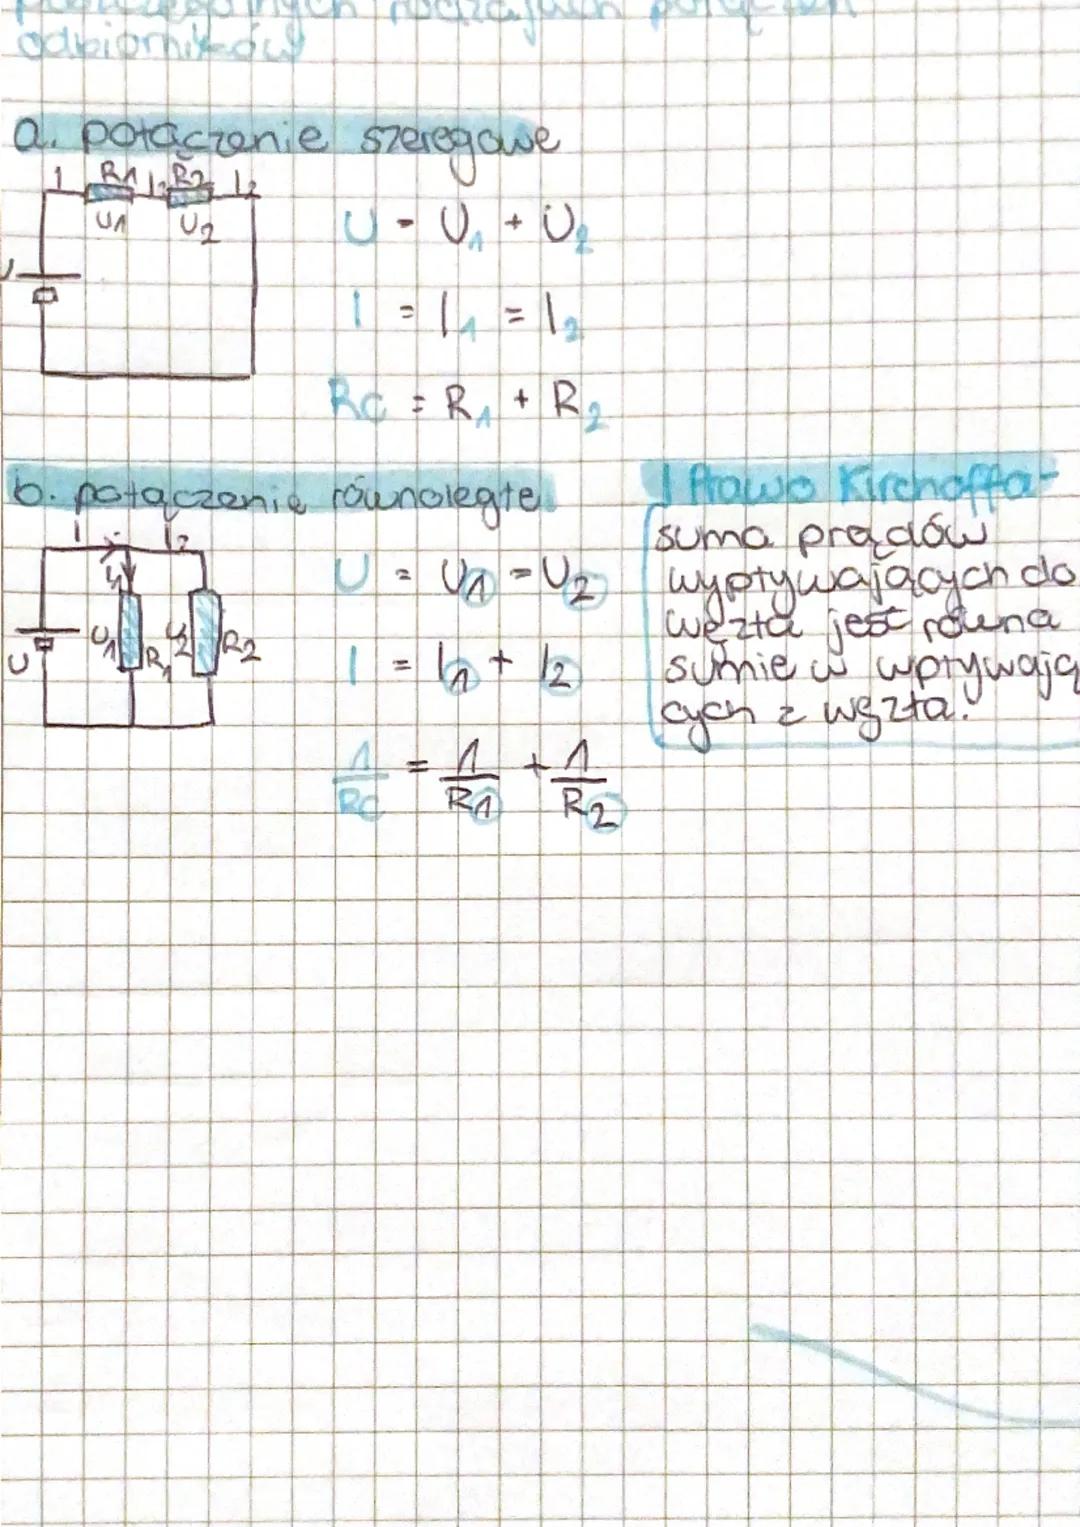 odbiorników
a. połączenie szeregowe
I R1 I1 R2 I2
U1 U2
U = U1 + U2
I = I1 = I2
RC = R1 + R2
b. połączenie równoległe
I I2
I1
U U1 R1 U2 R2
U = U1 = U2
I = I1 + I2
1/RC = 1/R1 + 1/R2
I Prawo Kirchoffa-
suma prądów
wypływających do
węzła jest równa
sumie w wpływają
cych z węzła.